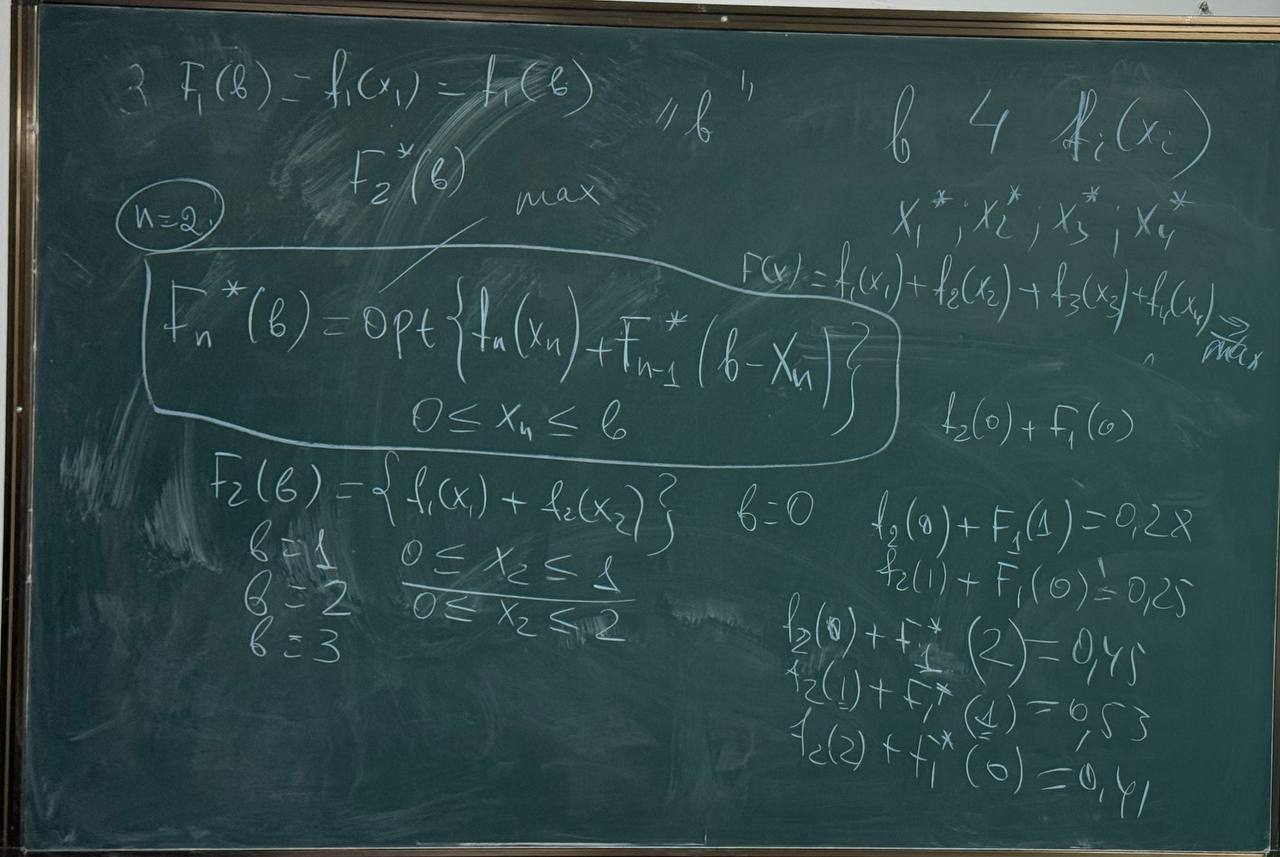 3 F₁(в) = f₁(x₁) = f₁(в)
"в"
F₂*(в)
max
n=2
Fₙ*(в) = opt{fₙ(xₙ) + F*ₙ₋₁(в-xₙ)}
0 ≤ xₙ ≤ в
F₂(в) = {f₁(x₁) + f₂(x₂)}
в=1 0 ≤ x₂ ≤ 1
в=2 0 ≤ x₂ ≤ 2
в=3
в 4 fᵢ(xᵢ)
x₁*; x₂*; x₃*; x₄*
F(x) = f₁(x₁) + f₂(x₂) + f₃(x₃) + f₄(x₄) ⇒
max
f₂(0) + F₁(0)
в=0
f₂(0) + F₁(1) = 0,28
f₂(1) + F₁(0) = 0,25
f₂(0) + F₁*(2) = 0,45
f₂(1) + F₁*(1) = 0,53
f₂(2) + f₁*(0) = 0,41